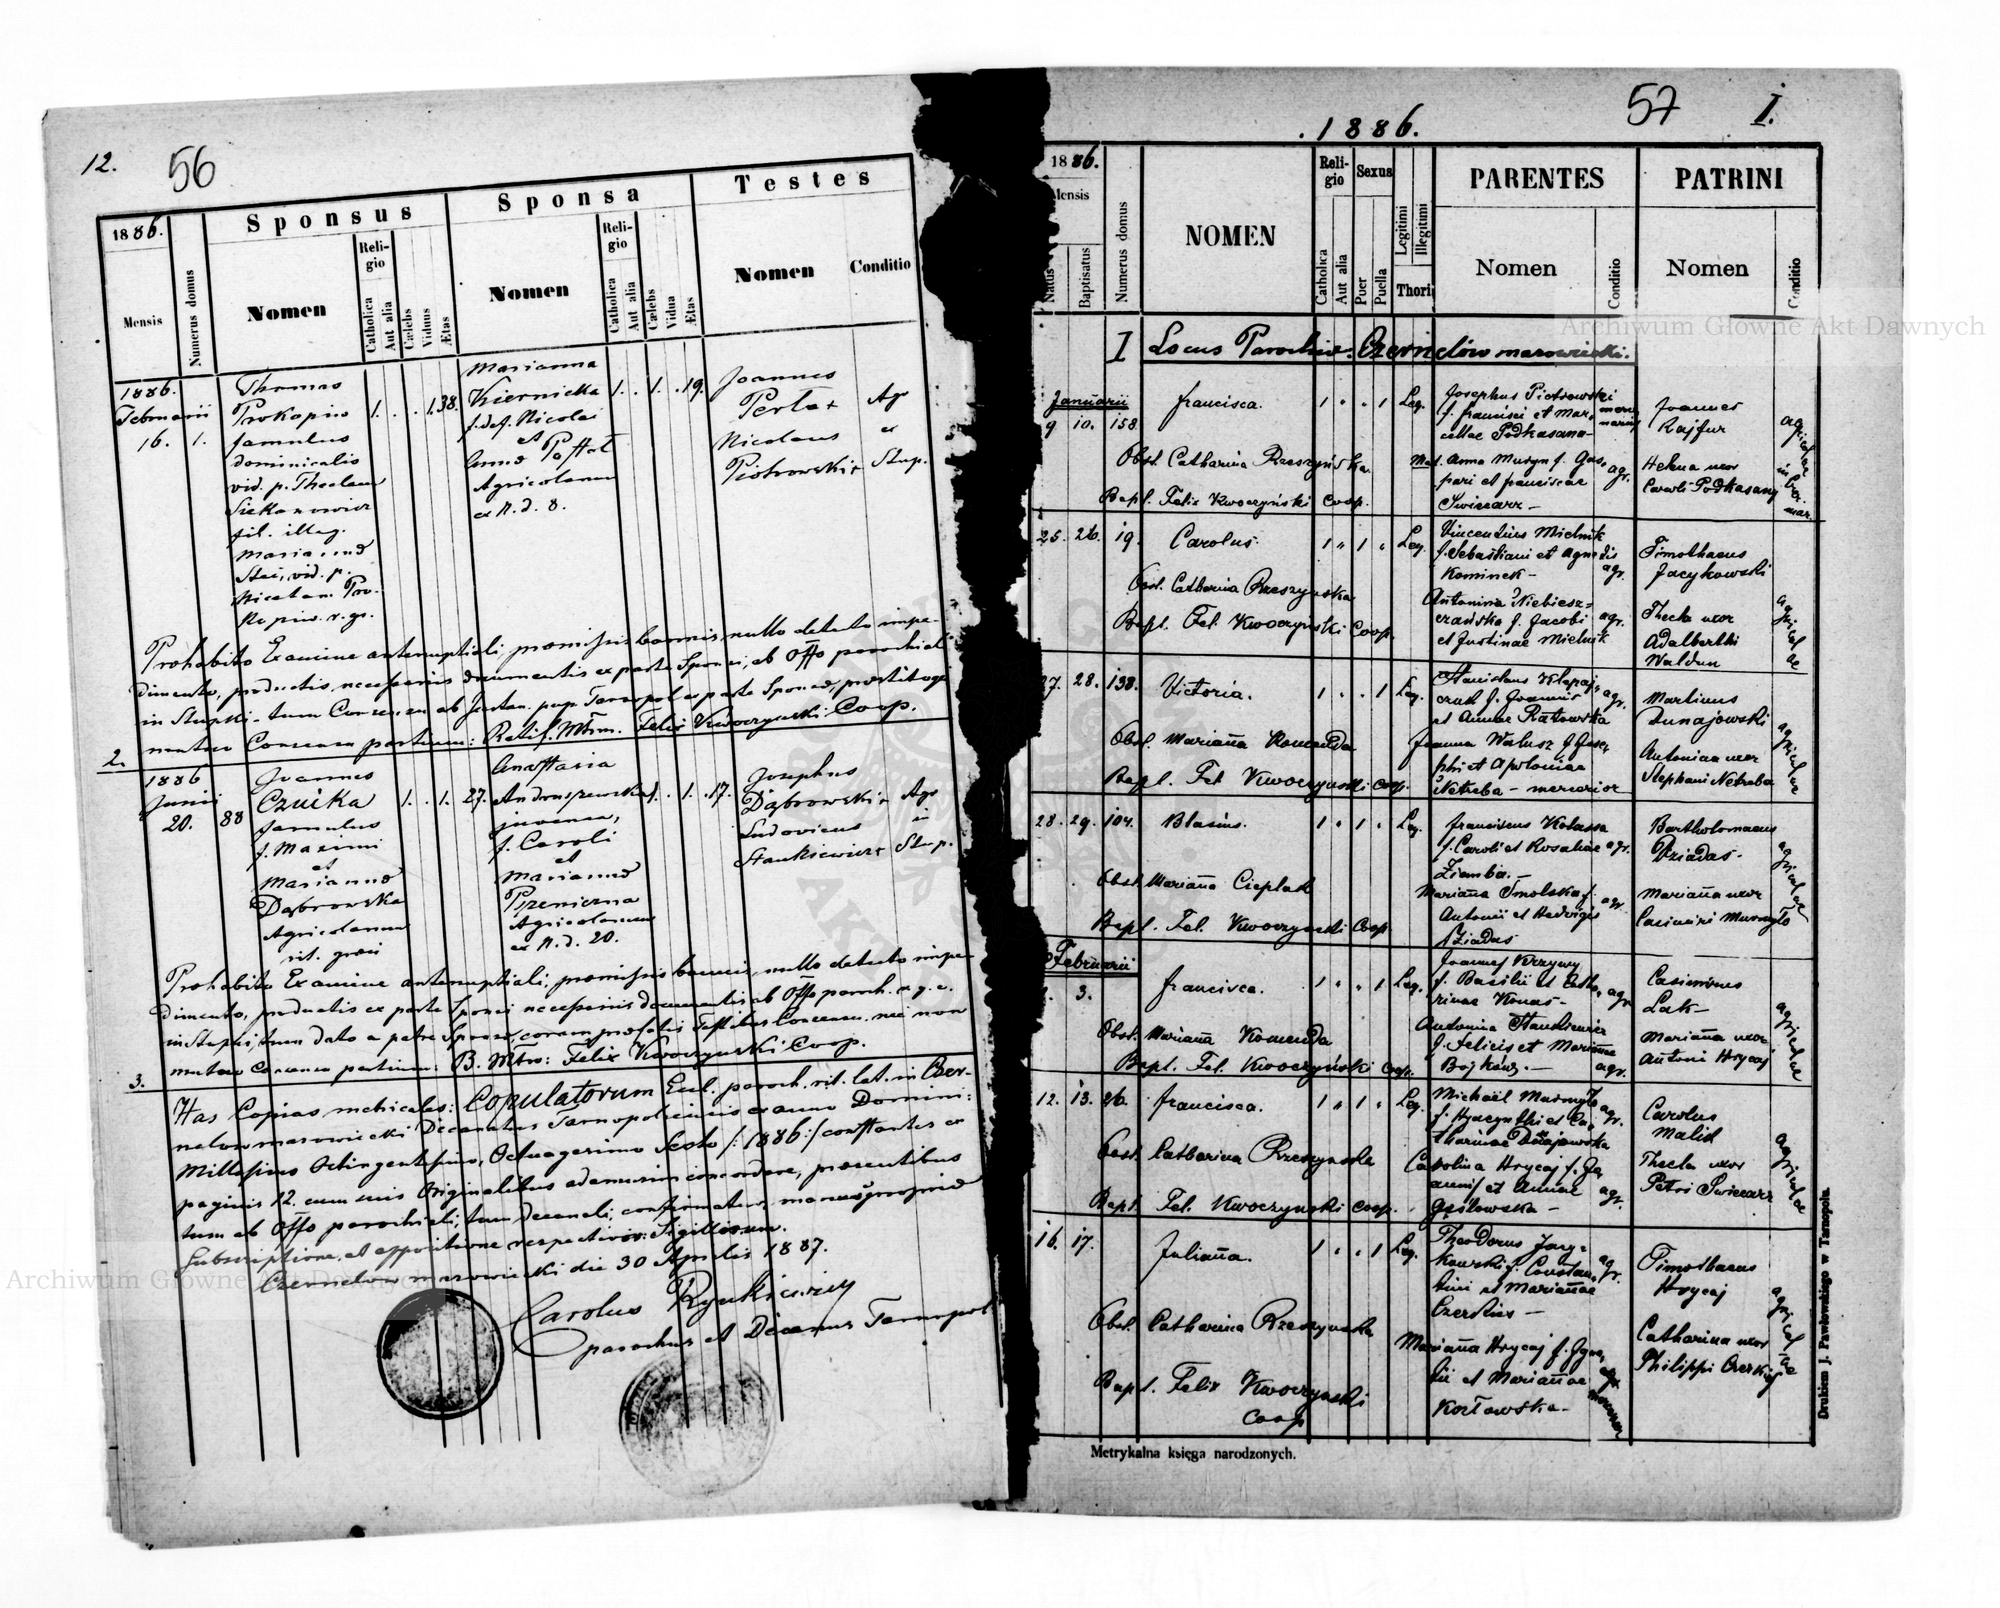 12.
56
1886.
Mensis
Numerus domus
Sponsus
Nomen
Religio
Catholica
Aut alia
Cælebs
Viduus
Ætas
Sponsa
Nomen
Religio
Catholica
Aut alia
Cælebs
Vidua
Ætas
Testes
Nomen
Conditio
1886.
Februarii
16. 1.
Thomas
Prokopiw
famulus
dominicalis
vid. p. Theclam
fil. illeg.
Mariannæ
vid. p.
r. gr.
1. . . 1. 38.
Marianna
Kiernicka
f. def. Nicolai
et
Annæ
Agricolarum
ex N. d. 8.
1. . 1. . 19.
Joannes
Agr
Nicolaus ex
Piotrowski + Stup.
Prohabito Examine antenuptiali, promissis bannis, nullo detecto impe-
dimento, productis necessariis documentis ex parte Sponsi, ab Offo parochiali
in Stupki - tum Consensu ab
mutuo Consensu partium: Felix Kwoczynski Coop.
2.
1886
Junii
20. 88
Joannes
Czuika
famulus
f. Maximi
et
Mariannæ
Dąbrowska
Agricolarum
rit. græci
1. . 1. 27.
Anastasia
Andruszewska
juvenca,
f. Caroli
et
Mariannæ
Agricolarum
ex N. d. 20.
1. . 1. . 17.
Josephus
Dąbrowski + Agr
Ludovicus in
Stankiewicz + Stup.
Prohabito Examine antenuptiali, promissis bannis, nullo detecto impe-
dimento, productis ex parte Sponsi necessariis documentis ab Offo paroch. r. g. c.
in Stupki, tum dato a patre Sponsæ, coram præfatis Testibus Consensu nec non
mutuo Consensu partium: B. Mtro: Felix Kwoczynski Coop.
3.
Has Copias metricales: Copulatorum Eccl. paroch. rit. lat. in Czer-
nelow mazowiecki Decanatus Tarnopoliensis ex anno Domini:
Millesimo Octingentesimo, Octuagesimo Sexto /:1886:/ constantes ex
paginis 12. cum suis Originalibus adamussim concordare, præsentibus
tum ab Offo parochiali, tum decanali, confirmatur, manus proprio
subscriptione, et appositione respectivor: Sigillorum.
Czernelow mazowiecki die 30 Aprilis 1887.
Carolus
parochus et Decanus Tarnopol
57 I.
.1886.
1886.
Mensis
Natus
Baptisatus
Numerus domus
NOMEN
Religio
Catholica
Aut alia
Sexus
Puer
Puella
Legitimi
Illegitimi
Thori
PARENTES
Nomen
Conditio
PATRINI
Nomen
Conditio
I Locus Parochiæ: Czernelów mazowiecki.
Januarii
9 10. 158.
Francisca.
1 . . 1 Leg.
Josephus Piotrowski
f. Francisci et Mar-
cellae Podkasana-
Mat. Anna Musyn f. Gas- agr.
pari et Franciscae
Swiecarz -
Joannes
Rajfur
Helena uxor
Caroli Podkasany
Obst. Catharina Rzeszyńska.
Bapt. Felix Kwoczyński Coop.
25. 26. 19.
Carolus.
1 " 1 " Leg.
Vincentius Mielnik
f. Sebastiani et Agnetis
Kominek - agr.
Antonina Niebiesz-
czańska f. Jacobi agr.
et Justinae Mielnik
Timothaeus
Jacykowski
Thecla uxor
Adalberthi
Waldun
agricolae
Obst. Catharina Rzeszynska
Bapt. Fel. Kwoczynski Coop.
27. 28. 138.
Victoria.
1 . . 1 Leg.
Stanislaus
f. Joannis agr.
et Annae
Joanna Walusz f. Jose-
phi et Apoloniae
Netreba - mercarior
Martinus
Dunajowski
Antonina uxor
Stephani Netreba
agricolae
Obst. Marianna Komenda
Bapt. Fel. Kwoczynski Coop.
28. 29. 104.
Blasius.
1 . 1 . Leg.
Franciscus Kolassa
f. Caroli et Rosaliae agr.
Ziomba. -
Marianna Smolska f. agr.
Antonii et Hedvigis
Dziadas
Bartholomaeus
Dziadas -
Marianna uxor
Casimiri Murmyło
agricolae
Obst. Marianna Cieplak
Bapt. Fel. Kwoczynski Coop
Februarii
3.
Francisca.
1 . . 1 Leg.
Joannes Krzywy
f. Basilii et Catha- agr.
rinae Konas -
Antonina Stankiewicz
f. Felicis et Mariannae
agr.
Casimirus
Lak -
Marianna uxor
Antoni Hrycaj
agricolae
Obst. Marianna Komenda
Bapt. Fel. Kwoczyński Coop.
12. 13. 26.
Francisca.
1 " 1 " Leg.
Michaël Murmyło agr.
f. Hyacynthi et Ca-
tharinae Dunajowska
Carolina Hrycaj f. Jo-
annis et Annae agr.
Gęślowska -
Carolus
Malik
Thecla uxor
Petri Swiecarz
agricolae
Obst. Catharina Rzeszynska
Bapt. Fel. Kwoczynski Coop.
16. 17.
Julianna.
1 . . 1 Leg.
Theodorus Jacy-
kowski f. Constan- agr.
tini et Mariannae
Czerkies -
Marianna Hrycaj f. Igna-
tii et Mariannae
Kozłowska -
Timothaeus
Hrycaj
Catharina uxor
Philippi Czerkies
agricolae
Obst. Catharina Rzeszynska
Bapt. Felix Kwoczynski
Coop
Metrykalna księga narodzonych.
Drukiem J. Pawłowskiego w Tarnopolu.
Archiwum Główne Akt Dawnych
Archiwum Główne Akt Dawnych